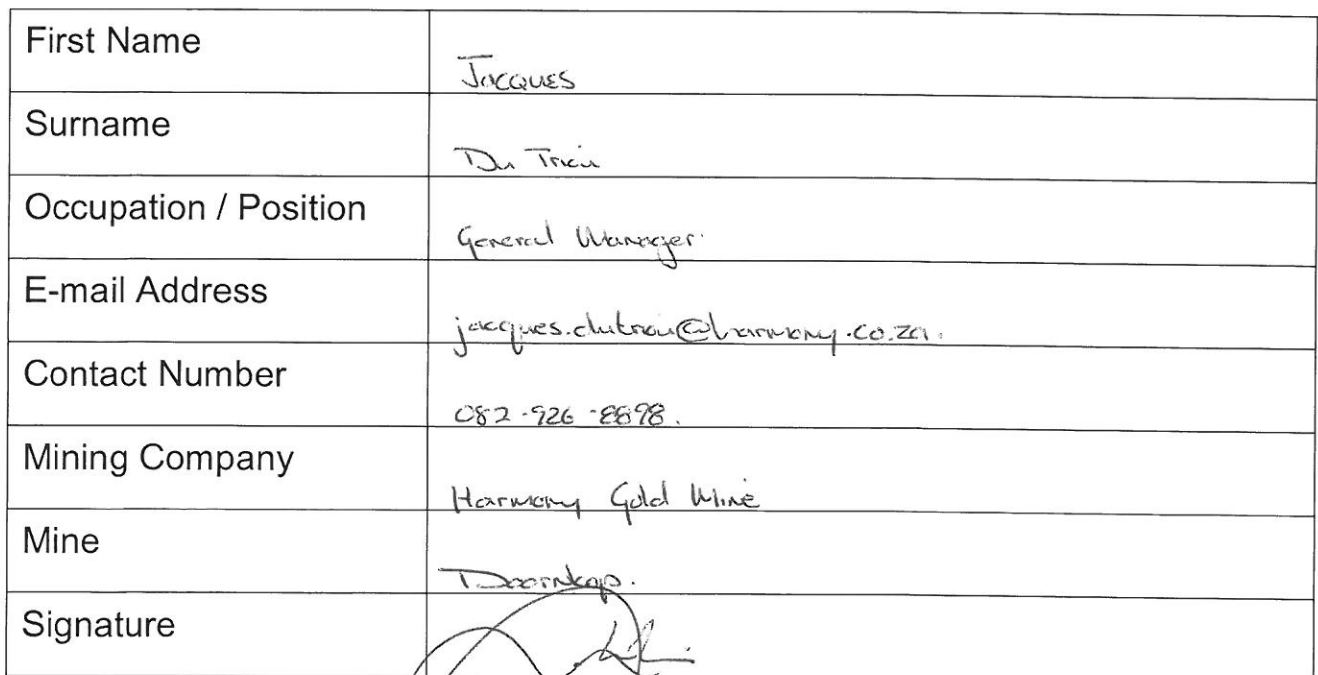 First Name
Jacques
Surname
Du Triou
Occupation / Position
General Manager.
E-mail Address
jacques.dutriou@harmony.co.za.
Contact Number
082-926-8898.
Mining Company
Harmony Gold Mine
Mine
Doornkop.
Signature